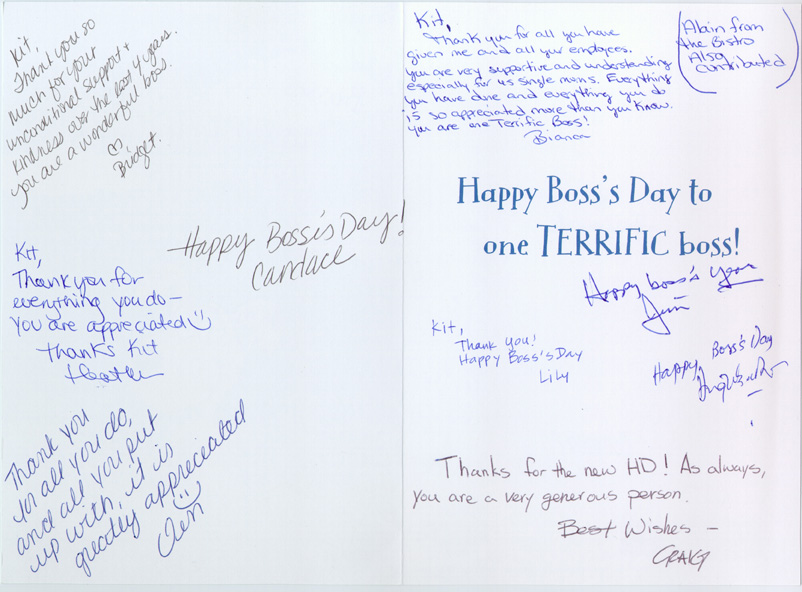 Kit,
Thank you so
much for your
unconditional support +
kindness over the last 4 years.
you are a wonderful boss.
Bridget.
Happy Boss's Day!
Candace
Kit,
Thank you for
everything you do —
you are appreciated
Thanks Kit
Heather
Thank you
for all you do,
and all you put
up with, it is
greatly appreciated
Jen
Kit,
Thank you for all you have
given me and all your employees.
you are very supportive and understanding
especially for us single moms. Everything
you have done and everything you do
is so appreciated more than you know.
you are one Terrific Boss!
Bianca
Alain from
the Bistro
Also
contributed
Happy Boss's Day to
one TERRIFIC boss!
Happy boss's year
Jim
Kit,
Thank you!
Happy Boss's Day
Lily
Happy Boss's Day
Thanks for the new HD! As always,
you are a very generous person.
Best Wishes —
CRAIG